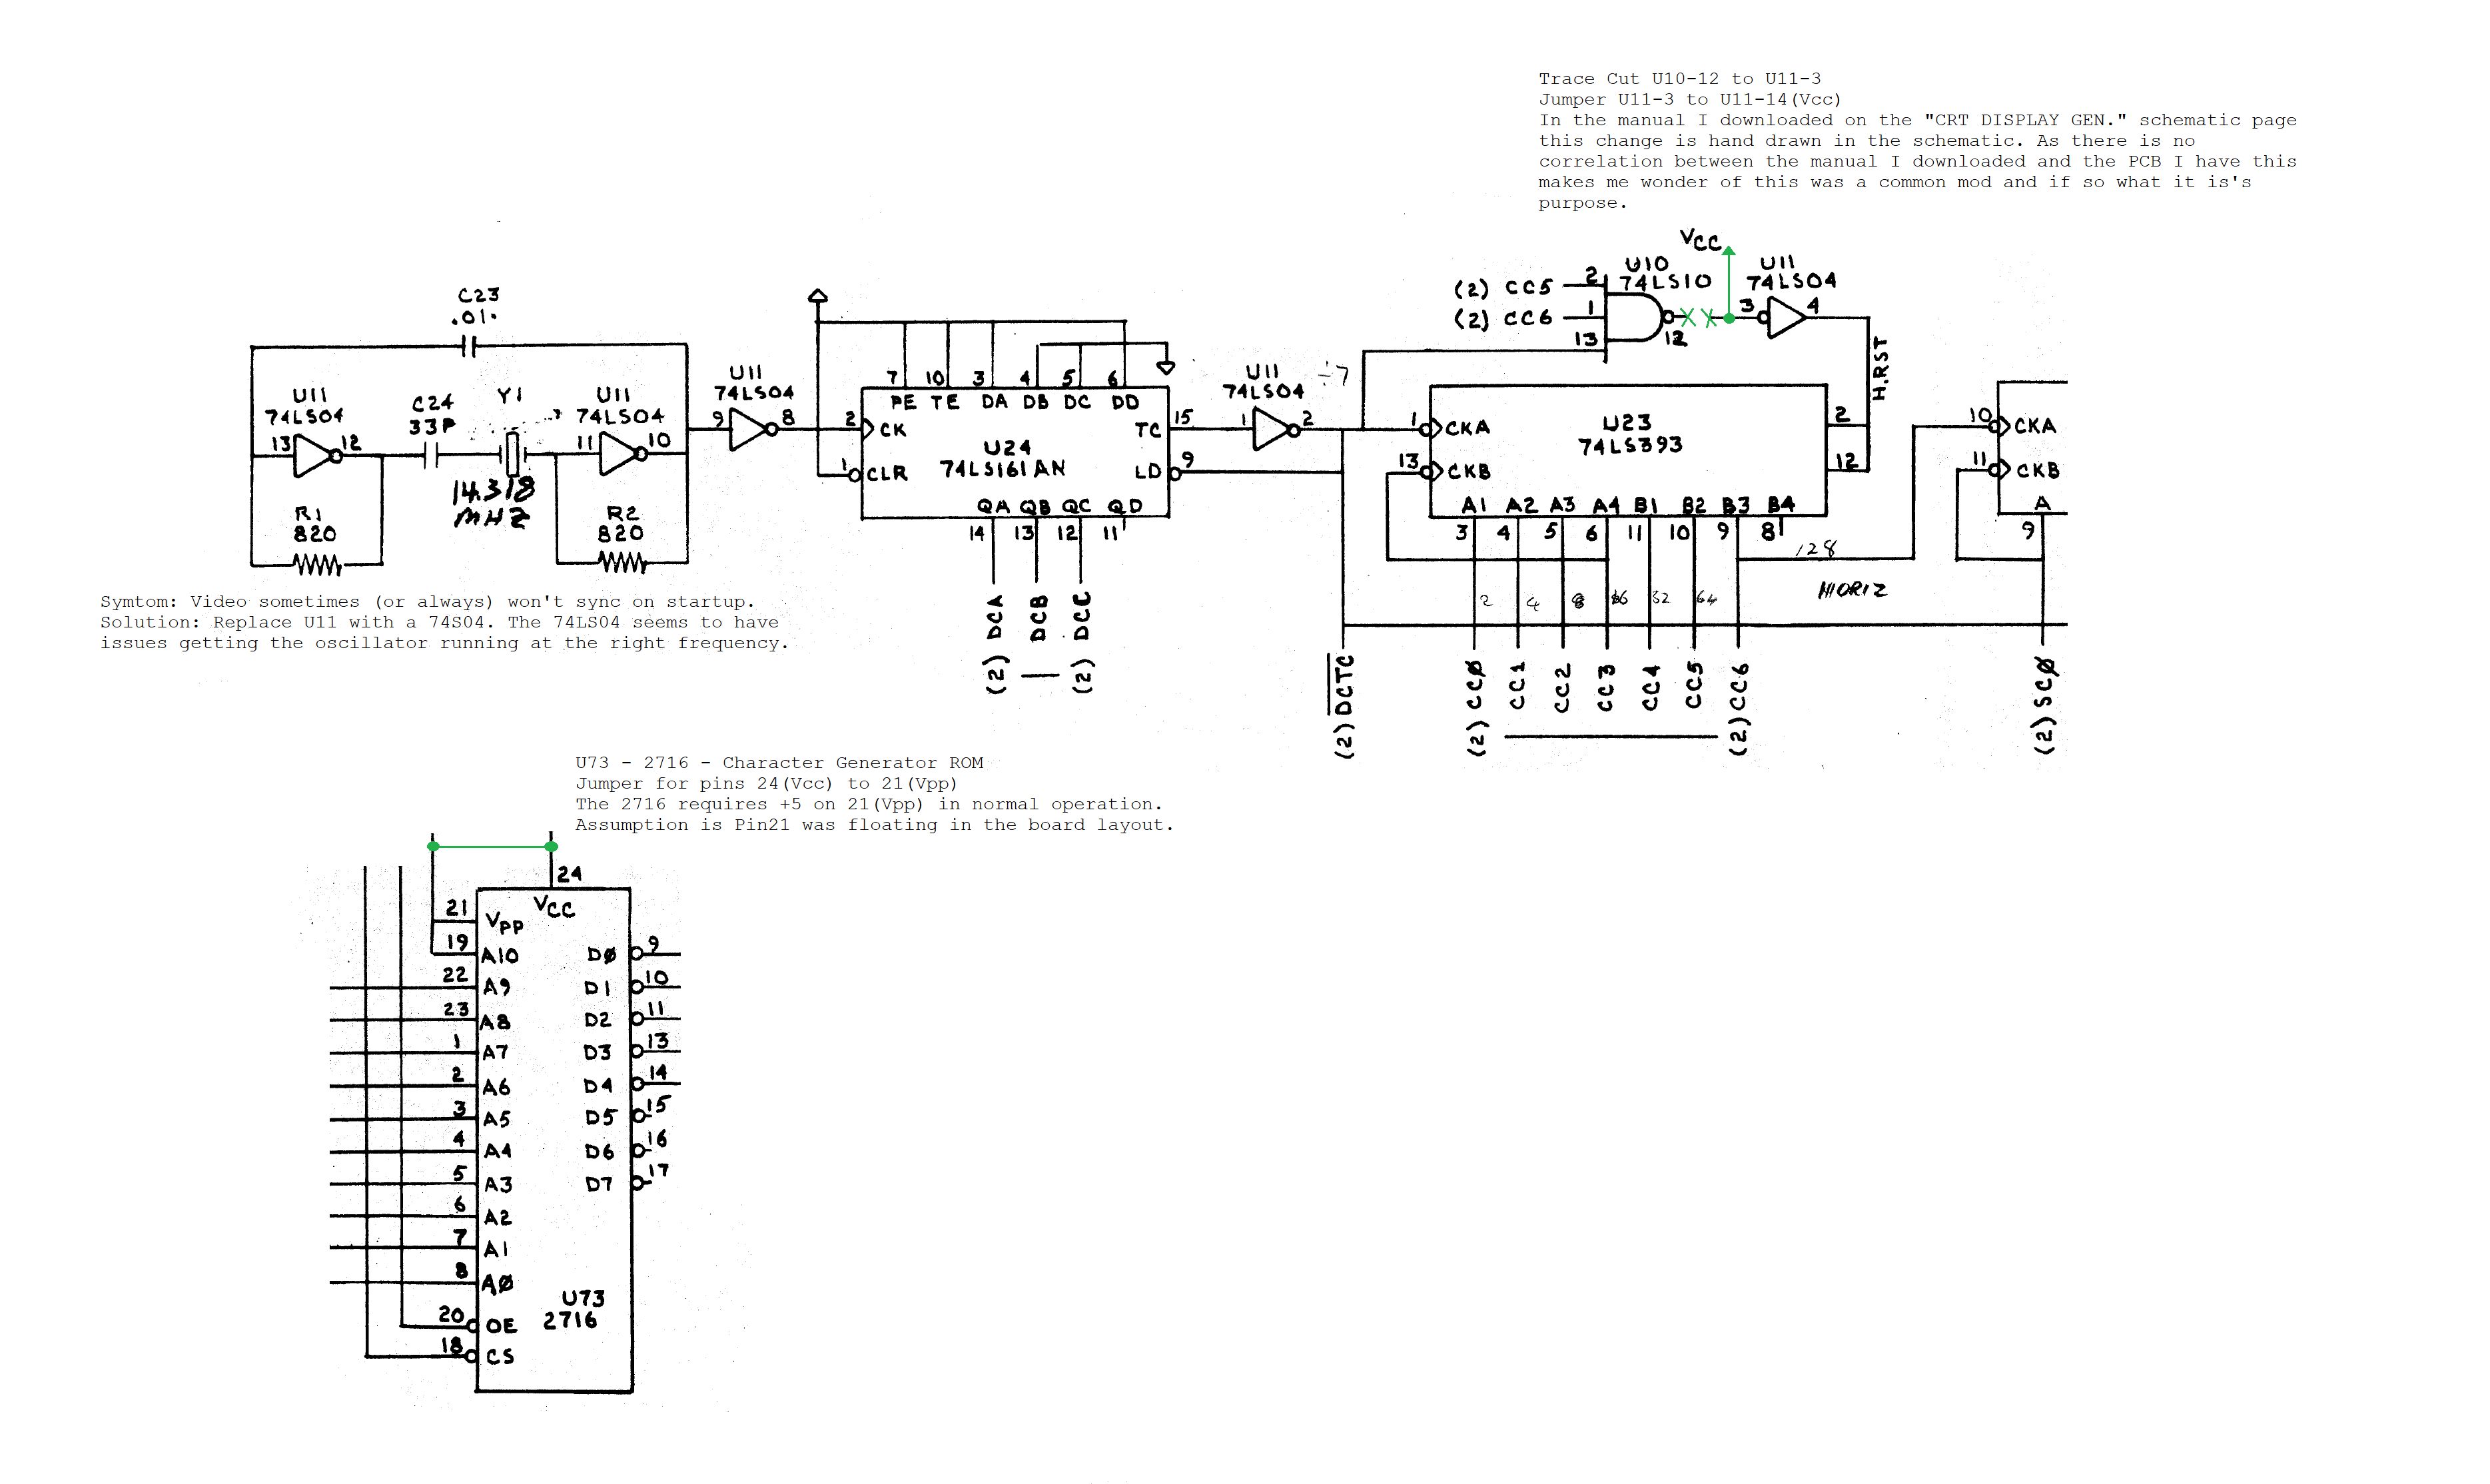 Trace Cut U10-12 to U11-3
Jumper U11-3 to U11-14(Vcc)
In the manual I downloaded on the "CRT DISPLAY GEN." schematic page
this change is hand drawn in the schematic. As there is no
correlation between the manual I downloaded and the PCB I have this
makes me wonder of this was a common mod and if so what it is's
purpose.
VCC
U10
74LS10
U11
74LS04
(2) CC5
2
(2) CC6
1
13
12
3
4
H.RST
C23
.01
U11
74LS04
13
12
C24
33P
Y1
14.318
MHZ
U11
74LS04
11
10
R1
820
R2
820
U11
74LS04
9
8
7 10 3 4 5 6
PE TE DA DB DC DD
2
CK
TC
15
U24
74LS161AN
1
CLR
LD
9
QA QB QC QD
14 13 12 11
(2) DCA
DCB
(2) DCC
U11
74LS04
1
2
÷7
1
CKA
U23
74LS393
2
13
CKB
12
A1 A2 A3 A4 B1 B2 B3 B4
3 4 5 6 11 10 9 8
128
HORIZ
2 4 8 16 32 64
(2) DCTC
(2) CCØ
CC1
CC2
CC3
CC4
CC5
(2) CC6
10
CKA
11
CKB
A
9
(2) SCØ
Symtom: Video sometimes (or always) won't sync on startup.
Solution: Replace U11 with a 74S04. The 74LS04 seems to have
issues getting the oscillator running at the right frequency.
U73 - 2716 - Character Generator ROM
Jumper for pins 24(Vcc) to 21(Vpp)
The 2716 requires +5 on 21(Vpp) in normal operation.
Assumption is Pin21 was floating in the board layout.
24
VCC
21 VPP
19 A10 DØ 9
22 A9 D1 10
23 A8 D2 11
1 A7 D3 13
2 A6 D4 14
3 A5 D5 15
4 A4 D6 16
5 A3 D7 17
6 A2
7 A1
8 AØ
U73
2716
20 OE
18 CS